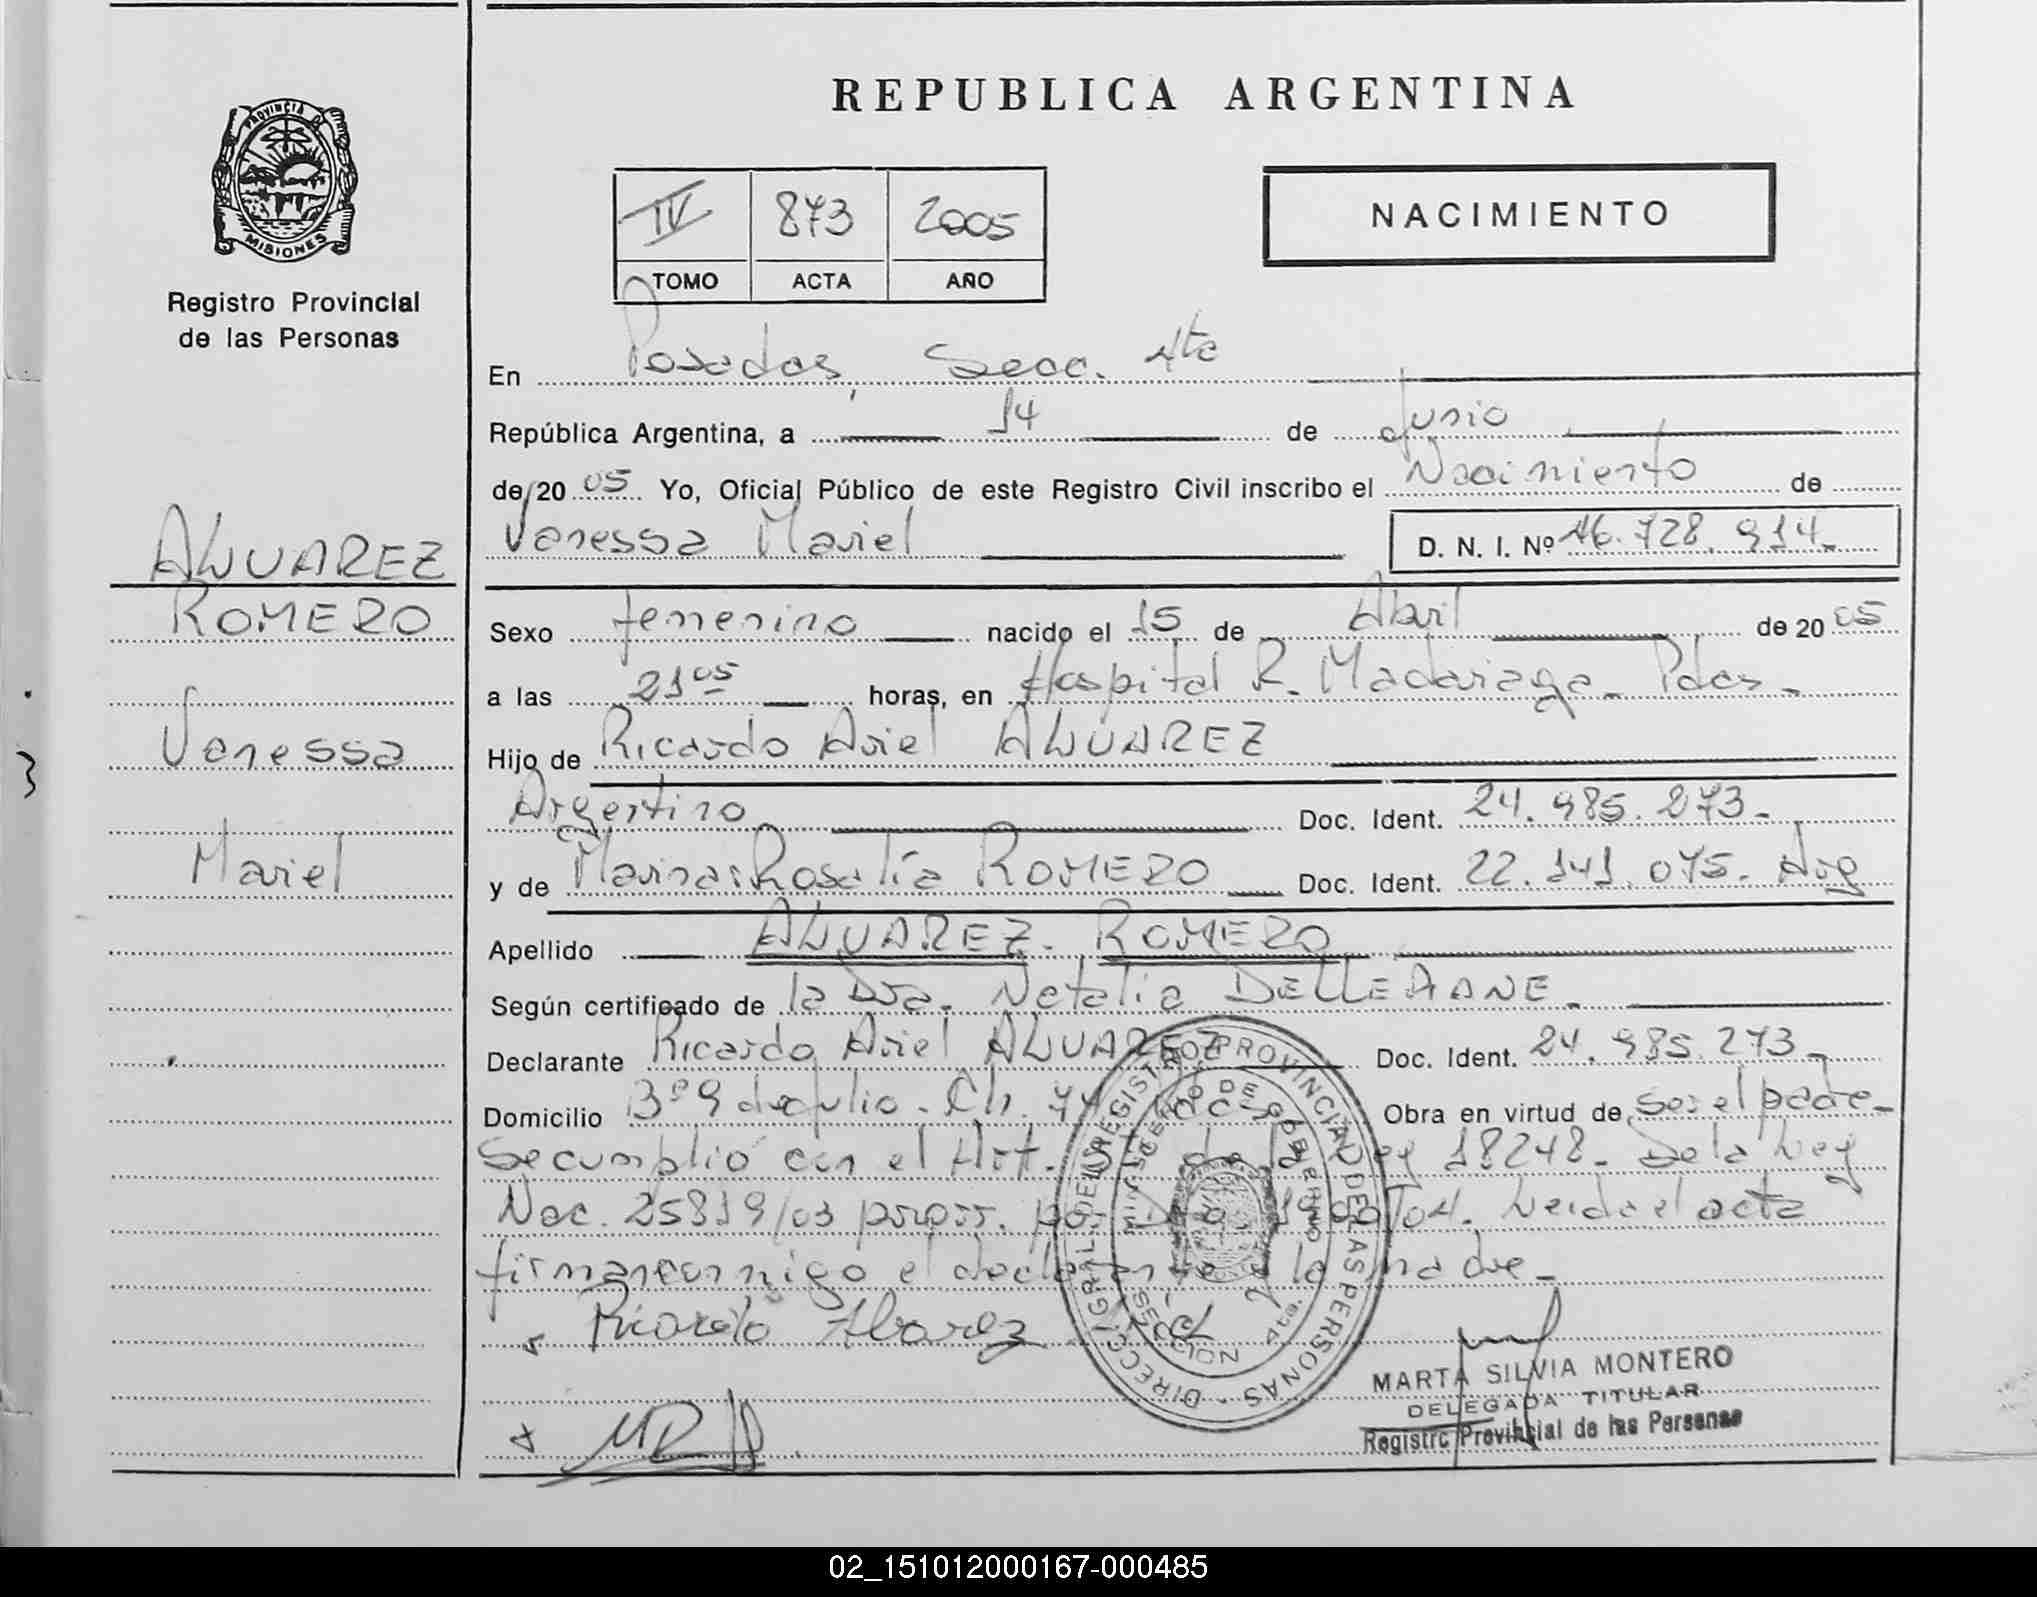 REPUBLICA ARGENTINA
PROVINCIA D
MISIONES
Registro Provincial
de las Personas
IV 873 2005
TOMO ACTA AÑO
NACIMIENTO
En Posadas, Secc. 4ta
República Argentina, a 14 de Junio
de 20 05 Yo, Oficial Público de este Registro Civil inscribo el Nacimiento de
Vanessa Mariel
D. N. I. Nº 46.728.914.
ALVAREZ
ROMERO
Vanessa
Mariel
Sexo femenino nacido el 15 de Abril de 20 05
a las 21 05 horas, en Hospital R. Madariaga - Pdas.
Hijo de Ricardo Ariel ALVAREZ
Argentino Doc. Ident. 24.985.273.
y de Marina Rosalía ROMERO Doc. Ident. 22.141.075. Arg
Apellido ALVAREZ ROMERO
Según certificado de la Dra. Natalia DELLEPIANE.
Declarante Ricardo Ariel ALVAREZ Doc. Ident. 24.985.273.
Domicilio 9 de Julio. Ch. Obra en virtud de ser el padre.
Se cumplió con el Art. de la Ley 18248. De la Ley
Nac. 25819/03 prorr. por Leida el acta
firman conmigo el declarante y la madre.
Ricardo Alvarez
MR
DIRECC. GRAL. DEL REGISTRO PROVINCIAL DE LAS PERSONAS
MINISTERIO DE GOBIERNO
SECCION
MARTA SILVIA MONTERO
DELEGADA TITULAR
Registro Provincial de las Personas
02_151012000167-000485